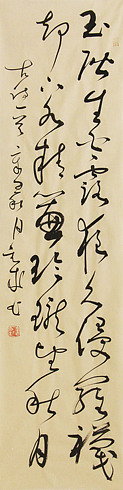 玉階生白露夜久侵羅襪
却下水精簾玲瓏望秋月
古诗一首 秋月 书